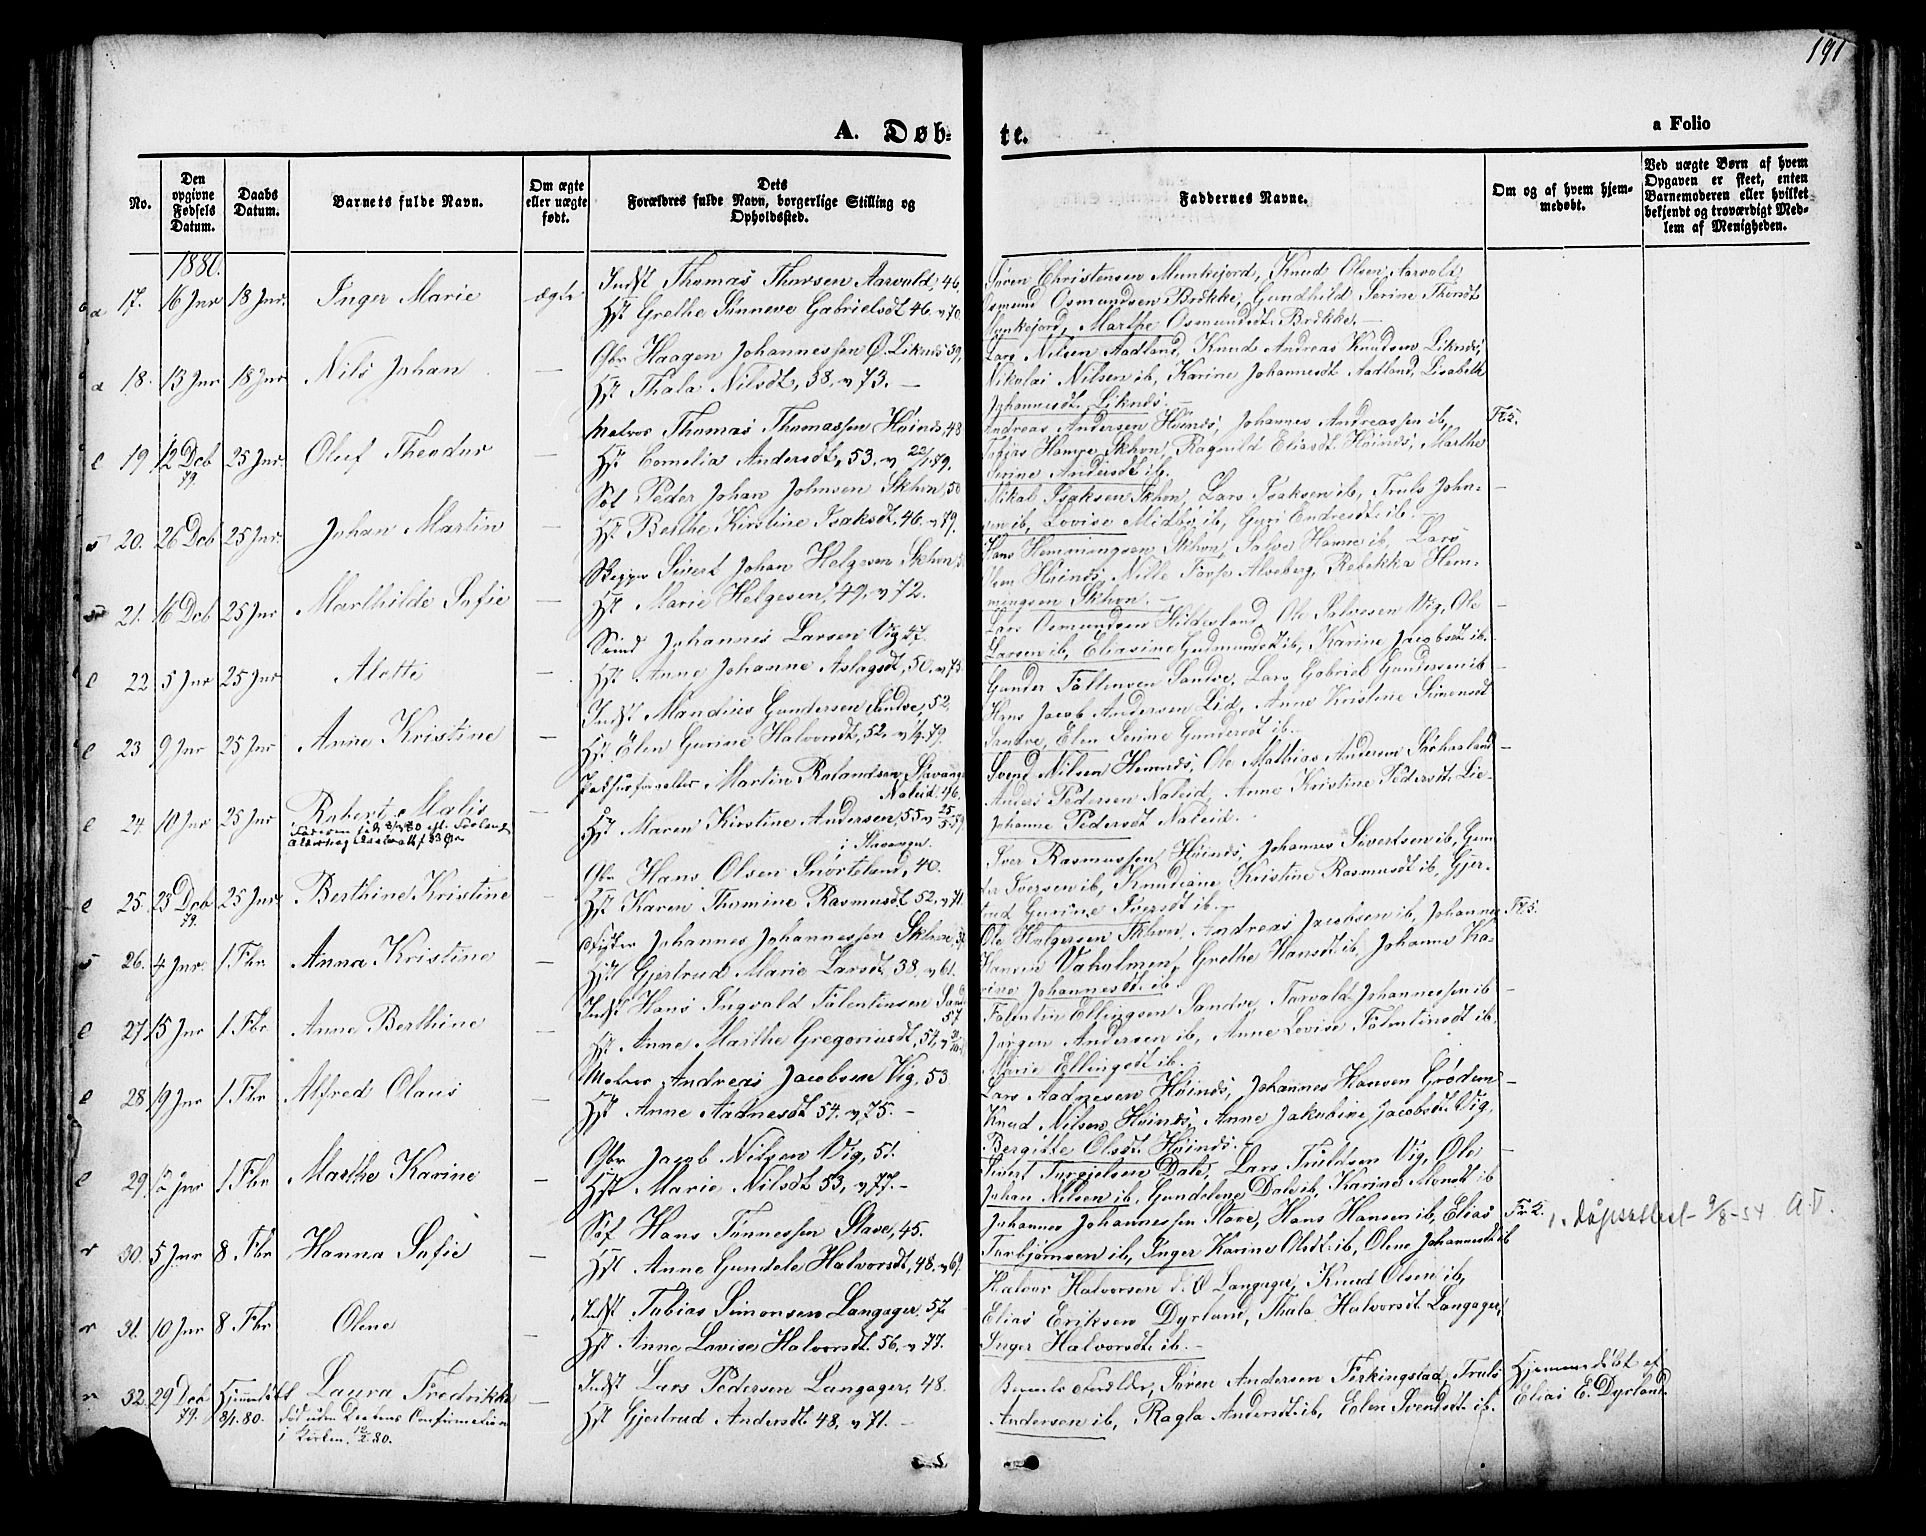 191
A. Døb-
te.
a Folio
No.
Den opgivne Fødsels Datum.
Daabs Datum.
Barnets fulde Navn.
Om ægte eller uægte født.
Dets Forældres fulde Navn, borgerlige Stilling og Opholdssted.
Faddernes Navne.
Om og af hvem hjem-
medøbt.
Ved uægte Børn af hvem
Opgaven er skeet, enten
Barnemoderen eller hvilket
bekjendt og troværdigt Med-
lem af Menigheden.
1880.
17. 16 Jnr 18 Jnr. Inger Marie ægte
Indst Thomas Thorsen Aarvold, 46.
Hst Grethe Sunneve Gabrielsdt 46. v 70.
Søren Christensen Munkejord, Knud Olsen Aarvold,
Osmund Osmundsen Brekke, Gundhild Serine Thorsdt
Munkejord, Marthe Osmundsdt Brekke. —
18. 13 Jnr 18 Jnr Nils Johan —
Gbr Haagen Johannessen Ø. Liknes 39,
Hst Thala Nilsdt, 38. v 73. —
Lars Nilsen Aadland, Knud Andreas Knudsen Liknes,
Nikolai Nilsen ib, Karine Johannesdt Aadland, Lisabeth
Johannesdt Liknes. —
19 12 Dcb 79. 25 Jnr. Oluf Theodor —
Matros Thomas Thomassen Høines, 48
Hst Cornelia Andersdt, 53. v 22/1.79.
Andreas Andersen Høines, Johannes Andreassen ib,
Hamre Skhvn, Ragnild Eliasdt Høines, Marthe
Serine Andersdt ib.
20. 26 Dcb 25 Jnr. Johan Martin —
Søf Peder Johan Johnsen Skhvn, 50
Hst Berthe Kirstine Isaksdt, 46. v 79.
Mikal Isaksen Skhvn, Lars Isaksen ib, Truls John-
sen ib, Lovise Midbø ib, Guri Endresdt ib. —
21. 16 Dcb 25 Jnr. Marthilde Sofie —
Sivert Johan Helgesen Skhvn
Hst Marie Helgesen, 49. v 72.
Hans Hemmingsen Skhvn, Salve Hamre ib, Lars
Høines, Nille Alveberg, Rebekka Hem-
mingsen Skhvn. —
22 5 Jnr 25 Jnr Alette —
Johannes Larsen Vig 47.
Hst Anne Johanne Aslagsdt, 50. v 73
Lars Osmundsen Hildesland, Ole Salvesen Vig, Ole
Larsen ib, Eliasine Gudmundsdt ib, Karine Jacobsdt ib.
23 9 Jnr 25 Jnr Anne Kristine —
Indst Mandius Gundersen Sandve, 52.
Hst Elen Gurine Halvorsdt, 52. v 1/4.79.
Gunder Føllinsen Sandve, Lars Gabriel Gundersen ib
Hans Jacob Andersen Lid, Anne Kristine Simonsdt
Sandve, Elen Serine Gundersdt ib. —
24. 10 Jnr 25 Jnr Robert Malis —
Martin Rolandsen, Stavanger
Naleid. 46.
Hst Maren Kirstine Andersen, 55 v
i Stavanger.
Svend Nilsen Hemnes, Ole Mathias Andersen
Anders Pedersen Naleid, Anne Kristine Pedersdt Lie-
Johanne Pedersdt Naleid. —
25. 23 Dcb 79. 25 Jnr Berthine Kristine —
Gbr Hans Olsen Snørteland, 40.
Hst Karen Thomine Rasmusdt 52. v 71.
Iver Rasmussen Høines, Johannes Sivertsen ib, Gun-
der Iversen ib, Knudiane Kristine Rasmusdt ib, Gjer-
trud Gurine Iversdt ib. —
26. 4 Jnr. 1 Fbr Anna Kristine —
Johannes Johannessen Skhvn
Hst Gjertrud Marie Larsdt, 38. v 61.
Ole Holgersen Skhvn, Andreas Jacobsen ib, Johannes
Hansen Vaholmen, Grethe Hansdt ib, Johanne Ka-
rine Johannesdt ib.
27 15 Jnr 1 Fbr Anne Berthine —
Indst Hans Ingvald Falentinsen Sand-
57
Hst Anne Marthe Gregoriusdt, 54.
Falentin Ellingsen Sandve, Torvald Johannessen ib
Jørgen Andersen ib, Anne Lovise Falentinsdt ib,
Marie Ellingsdt ib. —
28 19 Jnr 1 Fbr Alfred Olaus —
Matros Andreas Jacobsen Vig, 53
Hst Anne Aadnesdt 54. v 75. —
Lars Aadnesen Høines, Johannes Hansen Grødem
Knud Nilsen Høines, Anne Jakobine Jacobsdt Vig,
Bergitte Olsdt Høines. —
29. Jnr 1 Fbr Marthe Karine —
Gbr Jacob Nilsen Vig, 51.
Hst Marie Nilsdt 53, v 77. —
Sivert Torgjelsen Dale, Lars Truldsen Vig, Ole
Johan Nilsen ib, Gundelene Dale ib, Karine Monsdt ib
30. 5 Jnr 8 Fbr Hanna Sofie —
Søf Hans Tønnessen Stave, 45.
Hst Anne Gundele Halvorsdt, 48. v 69.
Johannes Johannessen Stave, Hans Hansen ib, Elias
Torbjørnsen ib, Inger Karine Olsdt ib, Olene Johannesdt ib
Dåpsattest 9/8-54 A.T.
31. 10 Jnr 8 Fbr Olene —
Indst Tobias Simonsen Langager, 57.
Hst Anne Lovise Halvorsdt. 56. v 77.
Halvor Halvorsen d. Ø Langager, Knud Olsen ib,
Elias Eriksen Dyrland, Thala Halvorsdt Langager,
Inger Halvorsdt ib. —
32. 29 Dcb 79. Hjemmedøbt 8/1.80. Laura Fredrikke —
død uden Daabens Confirmation
i Kirken. 12/2.80.
Indst Lars Pedersen Langager, 48.
Hst Gjertrud Andersdt 48, v 71. —
Barnets Forældre, Søren Andersen Ferkingstad, Truls
Andersen ib, Ragla Andersdt ib, Elen Svendsdt ib.
Hjemmedøbt af
Elias E. Dyrland.